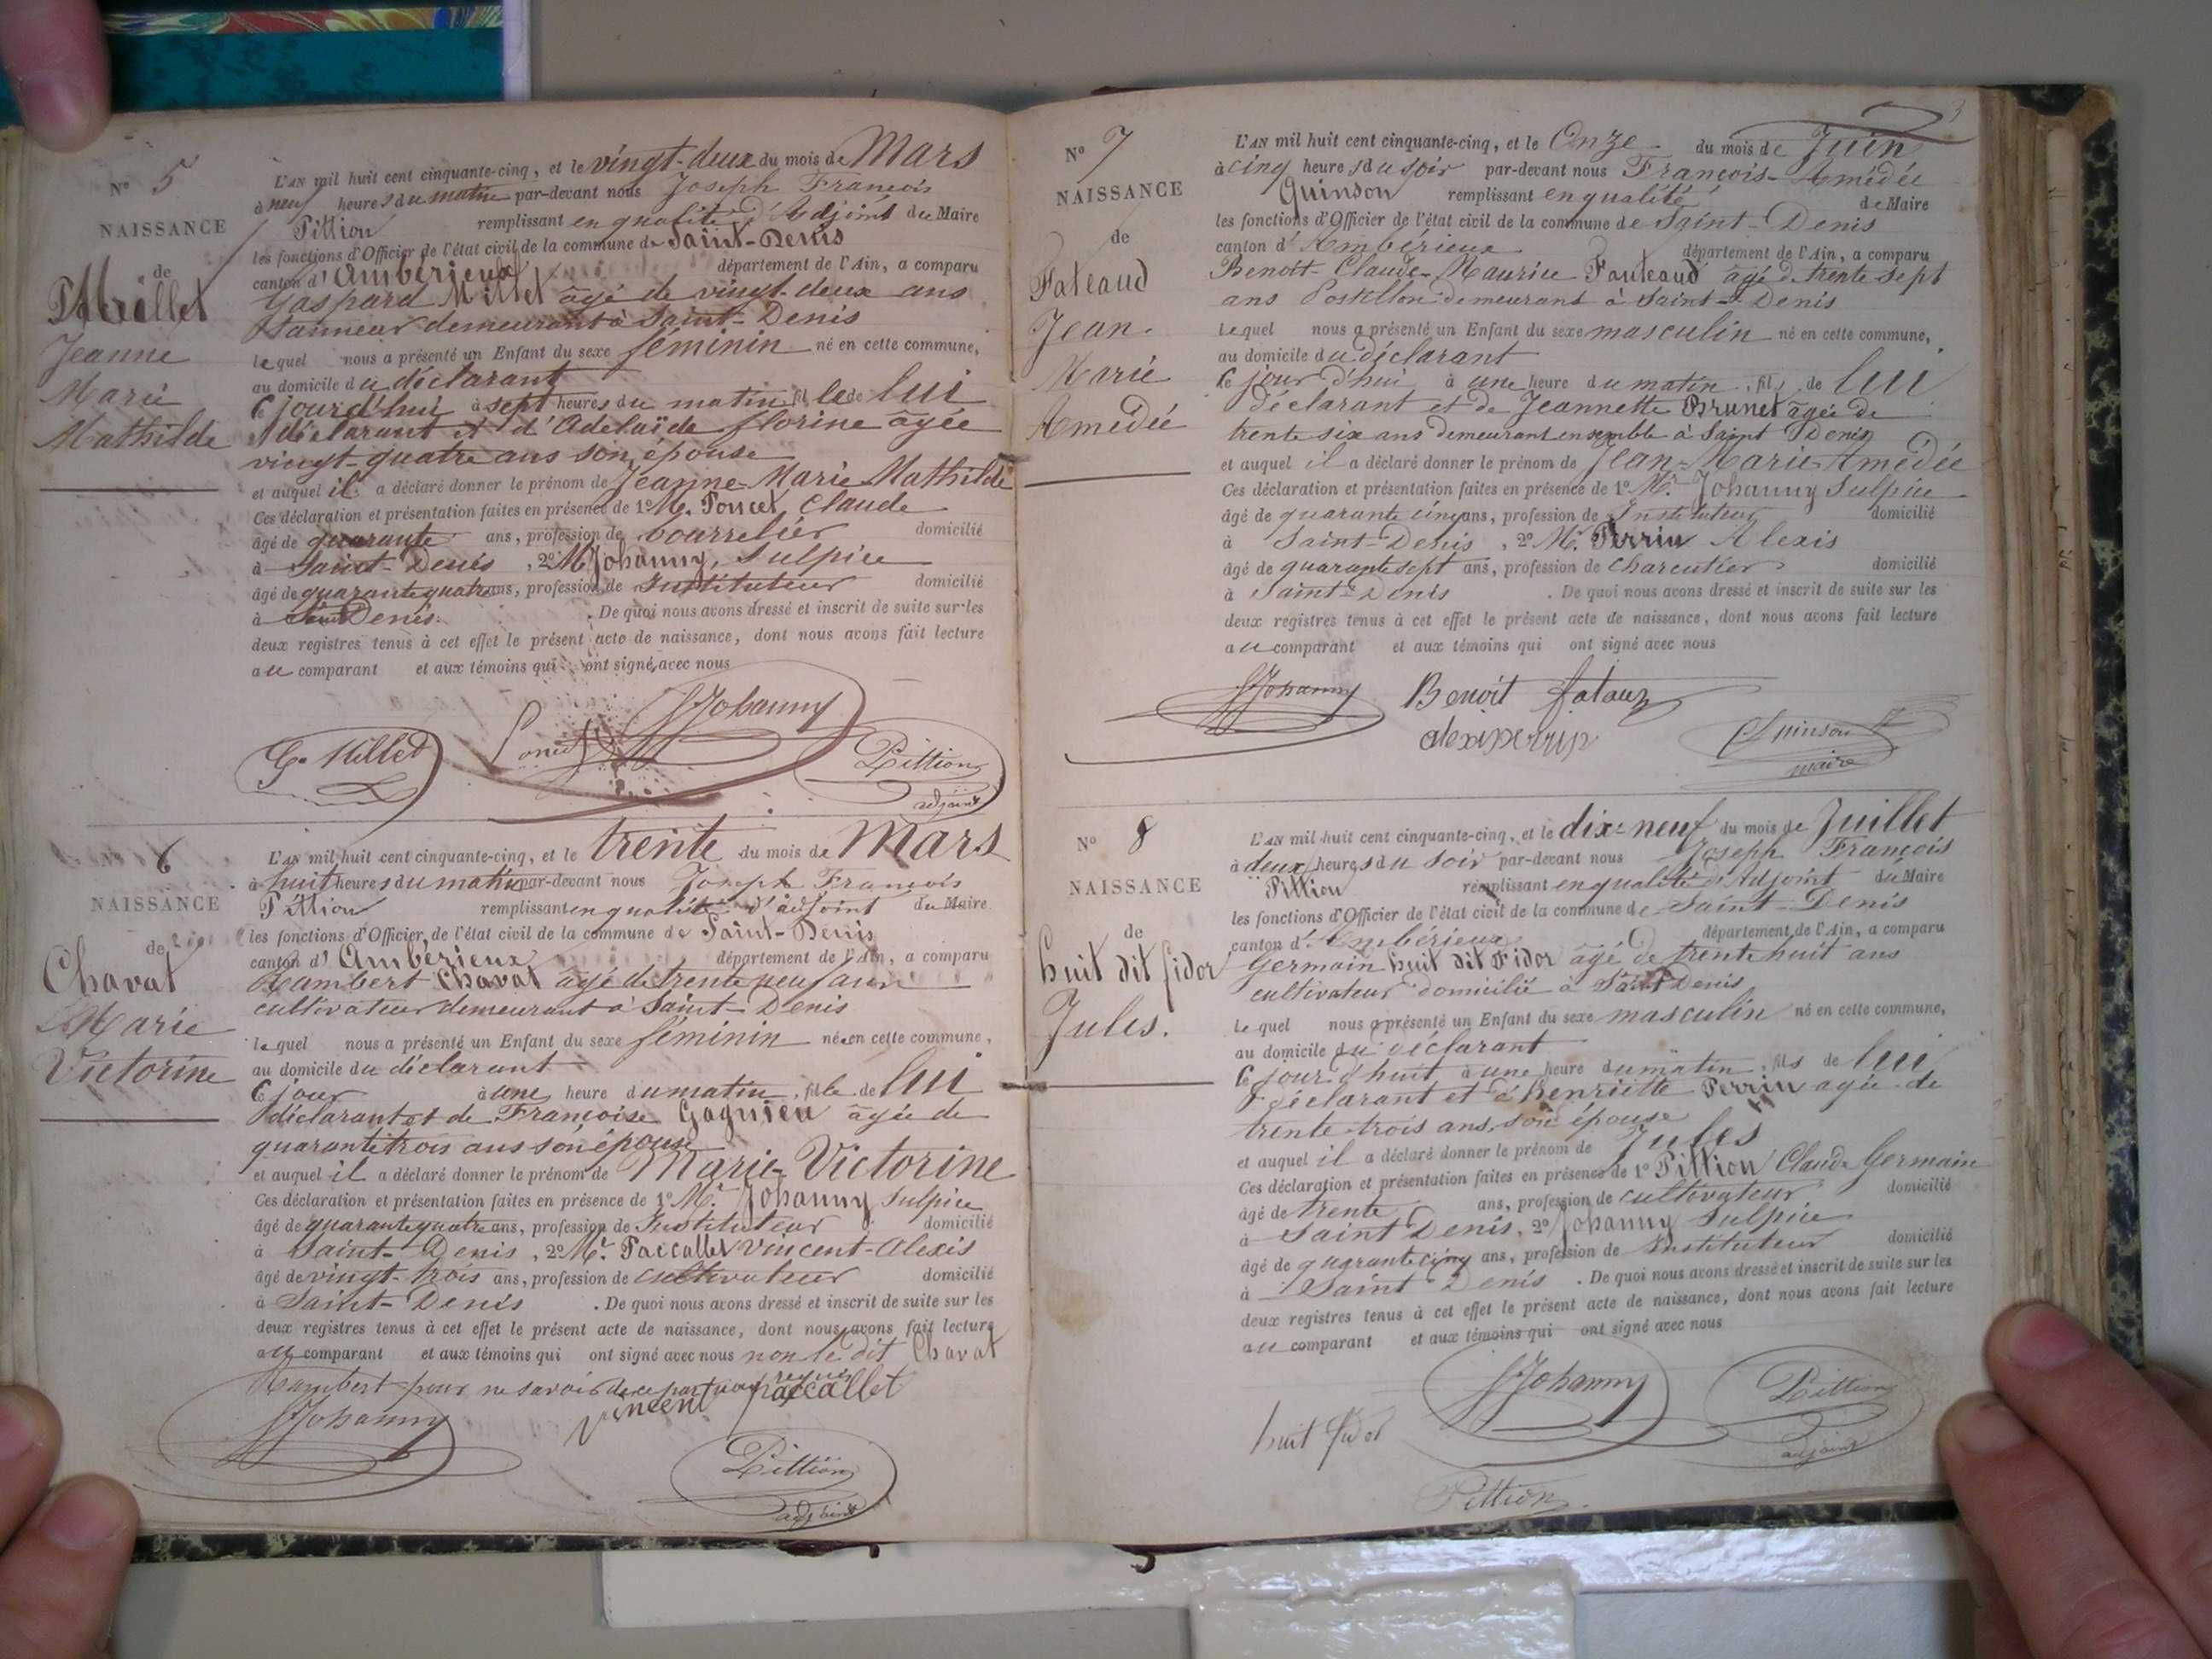 N° 5
NAISSANCE
de
Millet
Jeanne
Marie
Mathilde
L'AN mil huit cent cinquante-cinq, et le vingt-deux du mois de Mars
à neuf heures du matin par-devant nous Joseph François
Pittion remplissant en qualité d'Adjoint du Maire
les fonctions d'Officier de l'état civil de la commune de Saint-Denis
canton d'Ambérieux département de l'Ain, a comparu
Gaspard Millet âgé de vingt-deux ans
demeurant à Saint-Denis
lequel nous a présenté un Enfant du sexe féminin né en cette commune,
au domicile du déclarant
Ce jourd'hui à sept heures du matin fille de lui
déclarant et d'Adelaïde florine âgée
vingt-quatre ans son épouse
et auquel il a déclaré donner le prénom de Jeanne-Marie-Mathilde
Ces déclaration et présentation faites en présence de 1° M. Poncet, Claude
âgé de quarante ans, profession de bourrelier domicilié
à Saint-Denis, 2° M Johanny, Sulpice
âgé de quarante quatre ans, profession de instituteur domicilié
à Saint Denis. De quoi nous avons dressé et inscrit de suite sur les
deux registres tenus à cet effet le présent acte de naissance, dont nous avons fait lecture
au comparant et aux témoins qui ont signé avec nous
SJohanny
G. Millet Poncet Pittion
adjoint
N° 6
NAISSANCE
de
Chavat
Marie
Victorine
L'AN mil huit cent cinquante-cinq, et le trente du mois de Mars
à huit heures du matin par-devant nous Joseph François
Pittion remplissant en qualité d'adjoint du Maire
les fonctions d'Officier de l'état civil de la commune de Saint-Denis
canton d'Ambérieux département de l'Ain, a comparu
Rambert Chavat âgé de trente neuf ans
cultivateur demeurant à Saint-Denis
lequel nous a présenté un Enfant du sexe féminin née en cette commune,
au domicile du déclarant
Ce jour à une heure du matin, fille de lui
déclarant et de Françoise Gagnieu âgée de
quarante trois ans son épouse
et auquel il a déclaré donner le prénom de Marie-Victorine
Ces déclaration et présentation faites en présence de 1° Mr. Johanny Sulpice
âgé de quarante quatre ans, profession de Instituteur domicilié
à Saint-Denis, 2° Mr. Paccallet Vincent-Alexis
âgé de vingt-trois ans, profession de cultivateur domicilié
à Saint-Denis. De quoi nous avons dressé et inscrit de suite sur les
deux registres tenus à cet effet le présent acte de naissance, dont nous avons fait lecture
au comparant et aux témoins qui ont signé avec nous non le dit Chavat
Rambert pour ne savoir de ce part requis
SJohanny vincent paccallet
Pittion
adjoint
3
N° 7
NAISSANCE
de
Fateaud
Jean
Marie
Amédée
L'AN mil huit cent cinquante-cinq, et le Onze du mois de Juin
à cinq heures du soir par-devant nous François-Amédée
Quinson remplissant en qualité de Maire
les fonctions d'Officier de l'état civil de la commune de Saint-Denis
canton d'Ambérieux département de l'Ain, a comparu
Benoit-Claude-Maurice Fauteaud âgé de trente sept
ans Postillon demeurant à Saint-Denis
lequel nous a présenté un Enfant du sexe masculin né en cette commune,
au domicile du déclarant
Ce jour d'hui à une heure du matin, fils de lui
déclarant et de Jeannette Brunet âgée de
trente six ans demeurant ensemble à Saint Denis
et auquel il a déclaré donner le prénom de Jean-Marie-Amédée
Ces déclaration et présentation faites en présence de 1° Mr. Johanny Sulpice
âgé de quarante cinq ans, profession de Instituteur domicilié
à Saint-Denis, 2° M. Perrin Alexis
âgé de quarante sept ans, profession de charcutier domicilié
à Saint-Denis. De quoi nous avons dressé et inscrit de suite sur les
deux registres tenus à cet effet le présent acte de naissance, dont nous avons fait lecture
au comparant et aux témoins qui ont signé avec nous
SJohanny Benoit fataux
alexiperrin Quinson
maire
N° 8
NAISSANCE
de
huit dit fidor
Jules.
L'AN mil huit cent cinquante-cinq, et le dix-neuf du mois de Juillet
à deux heures du soir par-devant nous Joseph François
Pittion remplissant en qualité d'Adjoint du Maire
les fonctions d'Officier de l'état civil de la commune de Saint-Denis
canton d'Ambérieux département de l'Ain, a comparu
Germain huit dit Fidor âgé de trente huit ans
cultivateur domicilié à Saint Denis
lequel nous a présenté un Enfant du sexe masculin né en cette commune,
au domicile du déclarant
Ce jour d'huit à une heure du matin, fils de lui
déclarant et d'henriette Perrin agée de
trente-trois ans, son épouse
et auquel il a déclaré donner le prénom de Jules
Ces déclaration et présentation faites en présence de 1° Pittion Claude Germain
âgé de trente ans, profession de cultivateur domicilié
à Saint Denis, 2° Johanny Sulpice
âgé de quarante cinq ans, profession de Instituteur domicilié
à Saint Denis. De quoi nous avons dressé et inscrit de suite sur les
deux registres tenus à cet effet le présent acte de naissance, dont nous avons fait lecture
au comparant et aux témoins qui ont signé avec nous
huit fidor SJohanny Pittion
adjoint
Pittion